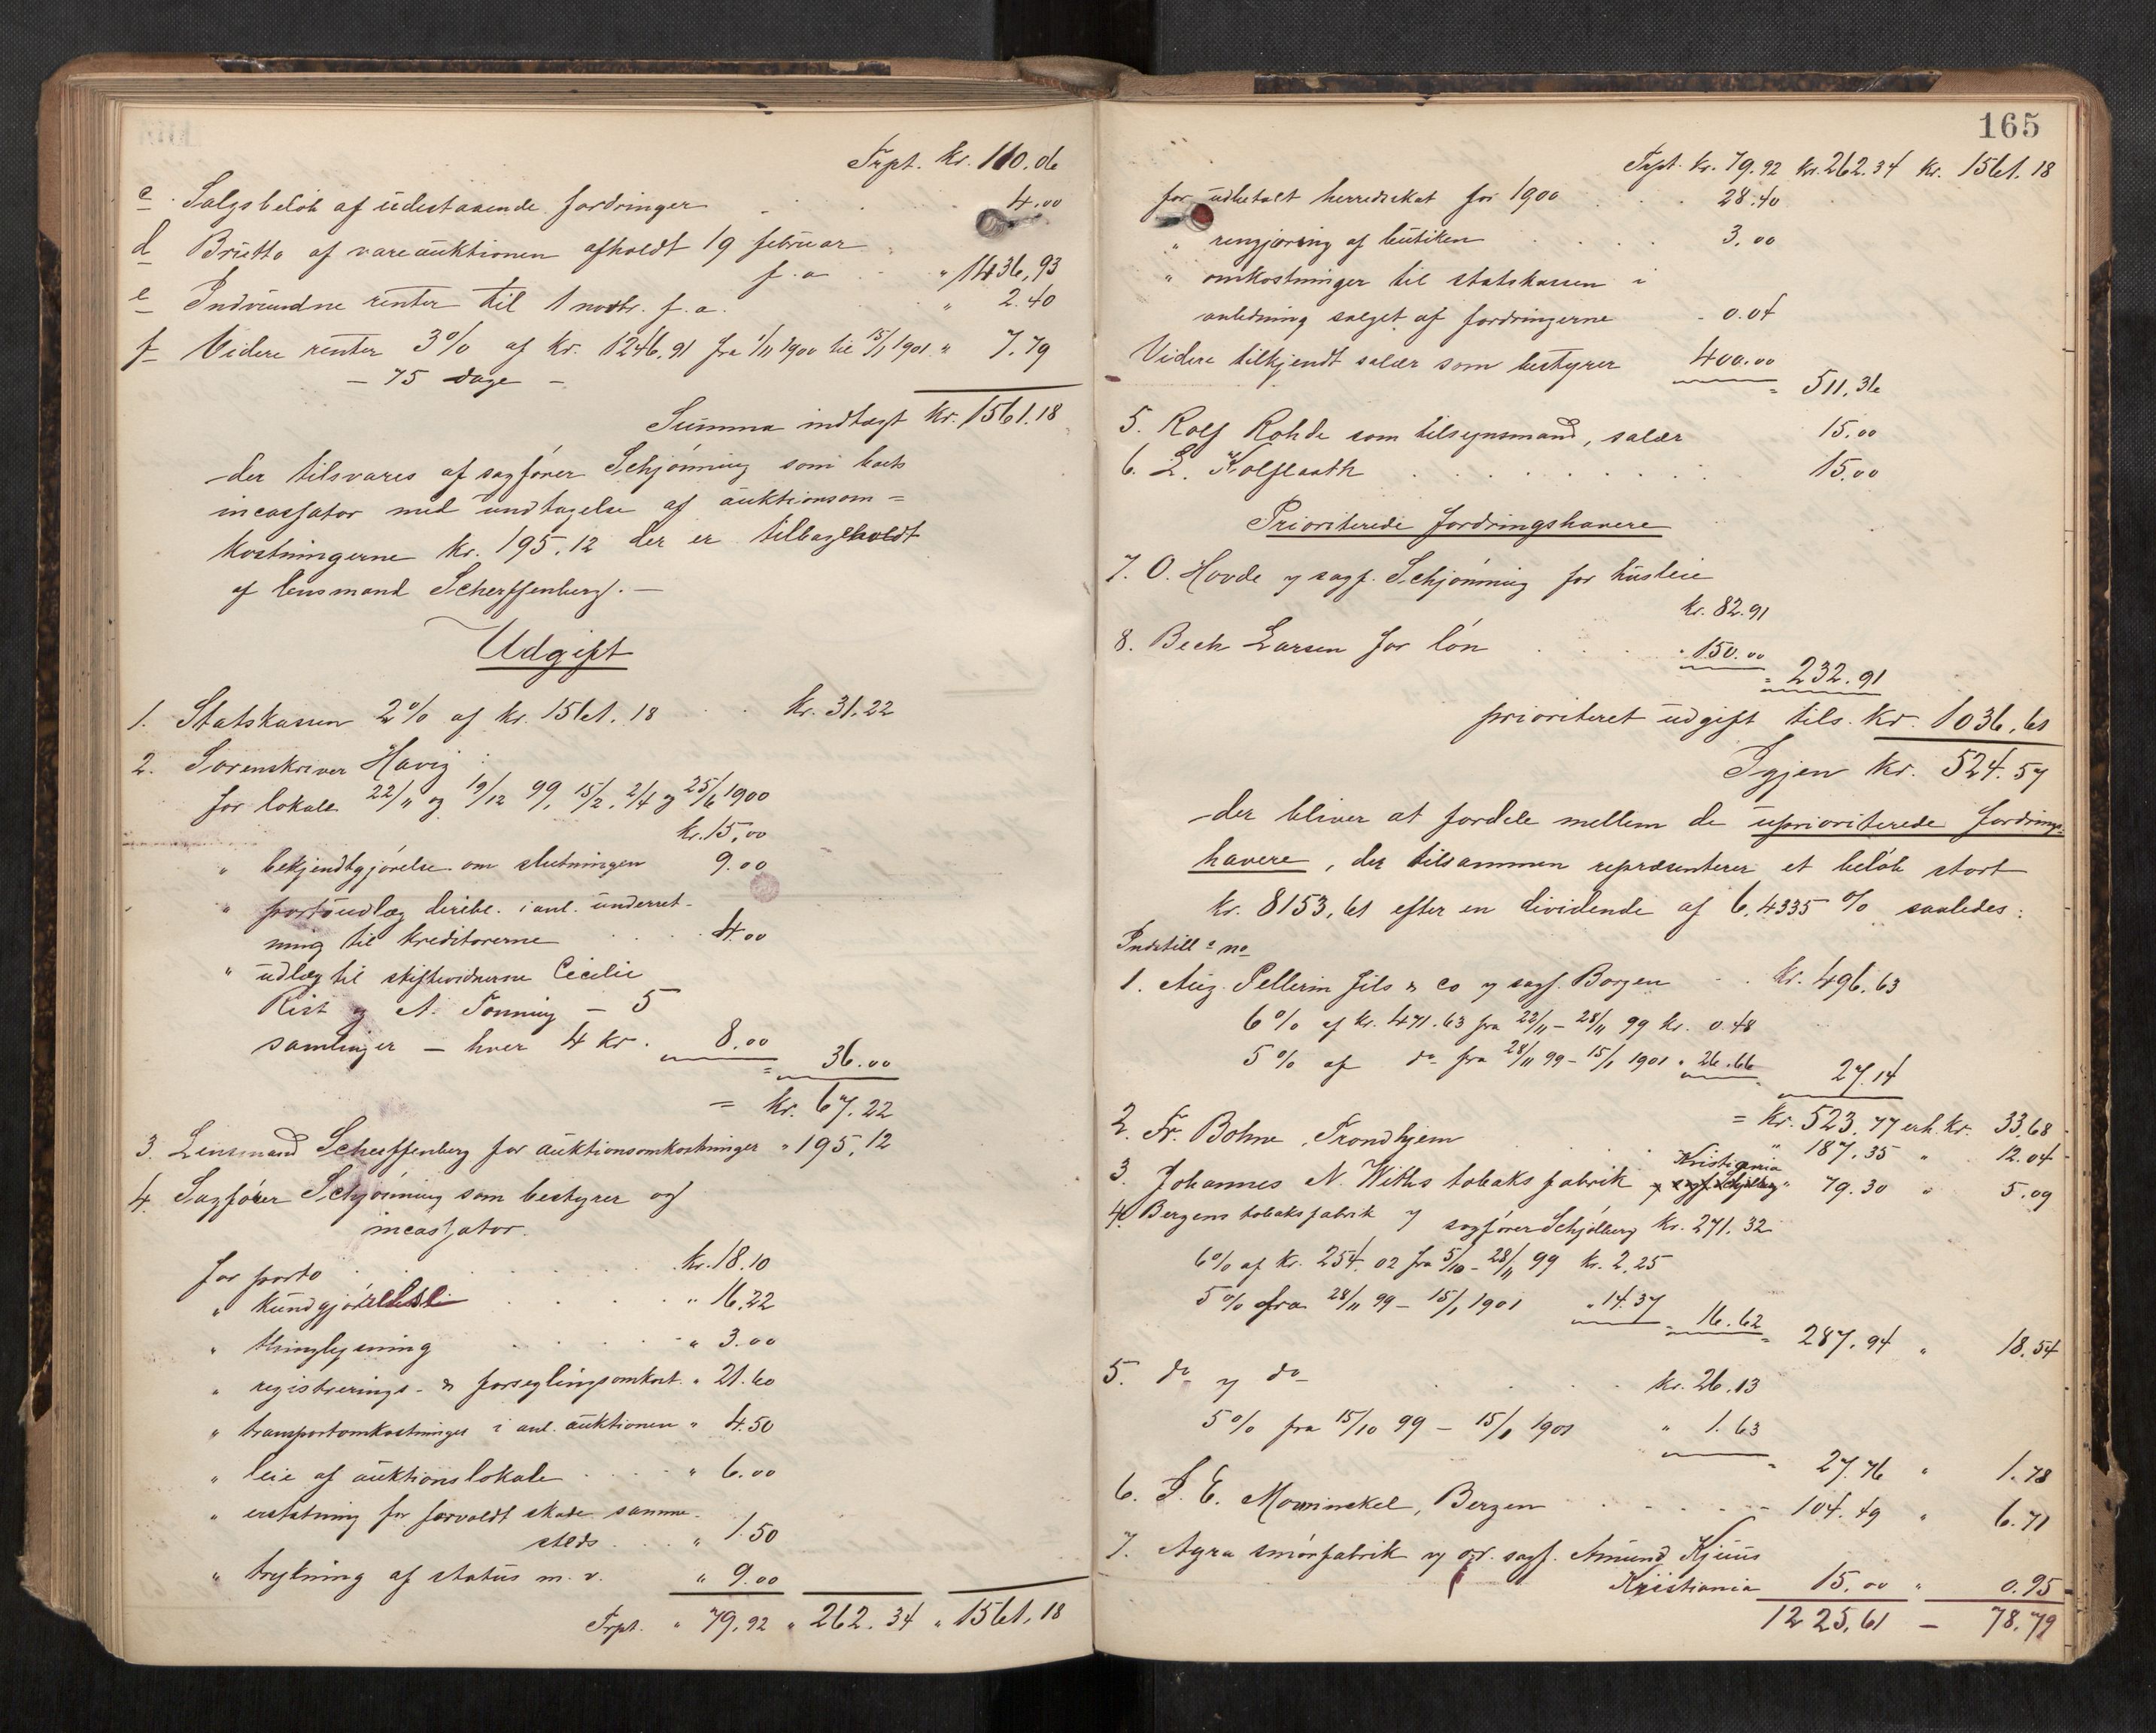 Trpt. Kr. 110.06
c. Salgsbeløb af udestaaende fordringer . . . 4.00
d Brutto af vareauktionen afholdt 19 februar
f. a. . . " 1436,93
e Indvundne renter til 1 novbr. f. a. . " 2.40
f Videre renter 3% af Kr. 1246.91 fra 1/11 1900 til 15/1 1901 " 7.79
– 75 dage –
Summa indtægt Kr. 1561.18
der tilsvares af sagfører Schjønning som boets
incassator med undtagelse af auktionsom=
kostningerne Kr. 195.12 der er tilbageholdt
af lensmand Scherffenberg. –
Udgift
1. Statskassen 2% af kr. 1561.18 . . Kr. 31.22
2. Sorenskriver Havig :
for lokale 22/11 og 19/12 99, 15/2, 2/4 og 25/6 1900
Kr. 15,00
" bekjendtgjørelse om slutningen 9.00
" portoudlæg deribl. i anl. underret-
ning til kreditorerne . . . 4.00
" udlæg til skiftevidnerne Cecilie
Rist og A. Tonning – 5
samlinger – hver 4 kr. 8.00
= 36.00
= Kr. 67.22
3. Lensmand Scherffenberg for auktionsomkostninger " 195,12
4. Sagfører Schjønning som bestyrer og
incassator.
for porto . . . . . . Kr. 18.10
" kundgjørelse . . . . " 16.22
" thinglysning . . . . " 3.00
" registrerings- & forseglingsomkost. " 21.60
" transportomkostninger i anl. auktionen " 4.50
" leie af auktionslokale . . . " 6.00
" erstatning for forvoldt skade samme-
steds . . . " 1.50
" trykning af status m. v. " 9.00
Trpt. " 79,92 " 262.34 " 1561,18
165
Trpt. Kr. 79.92 Kr. 262.34 Kr. 1561.18
for udbetalt herredsskat for 1900 . . . 28.40
" rengjøring af butiken . . . . 3,00
" omkostninger til statskassen i
anledning salget af fordringerne - 0.04
Videre tilkjendt salær som bestyrer 400.00
= 511,36
5. Rolf Rohde som tilsynsmand, salær 15.00
6. L. Kolflaath . . . . . . . 15.00
Prioriterede fordringshavere
7. O. Hovde v sagf. Schjønning for husleie
Kr. 82.91
8. Bech Larsen for løn . . . " 150.00
= 232.91
prioriteret udgift tils. Kr. 1036,61
Igjen Kr. 524.57
der bliver at fordele mellem de uprioriterede fordrings-
havere, der tilsammen repræsenterer et beløb stort
Kr. 8153,61 efter en dividende af 6,4335 % saaledes:
Indstill.s no
1. Aug. Pellerin fils & Co v sagf. Borgen . . Kr. 496.63
6% af Kr. 471.63 fra 22/11 – 28/11 99 Kr. 0.48
5% af do fra 28/11 99 – 15/1 1901 " 26.66
27.14
= Kr. 523.77 erh. Kr. 33,68
2. Fr. Bohne, Trondhjem . . . " 187.35 " 12.04
3. Johannes N. Withs tobaksfabrik v sagf. Schjølberg Kristiania " 79.30 " 5.09
4. Bergens tobaksfabrik v sagfører Schjølberg Kr. 271.32
6% af Kr. 254.02 fra 5/10 – 28/11 99 Kr. 2.25
5% fra 28/11 99 – 15/1 1901 " 14.37
= 16.62
= 287.94 " 18.54
5. do v do . . . Kr. 26.13
5% fra 15/10 99 – 15/1 1901 " 1.63
= 27.76 " 1.78
6. P. E. Mowinckel, Bergen . . . . 104.49 " 6.71
7. Agra smørfabrik v or. sagf. Amund Kjuus
Kristiania 15.00 " 0.95
1225,61 – 78,79